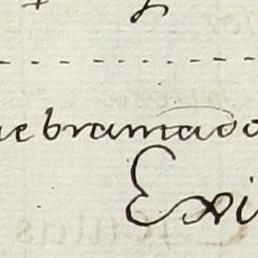 ue bramado
Exi